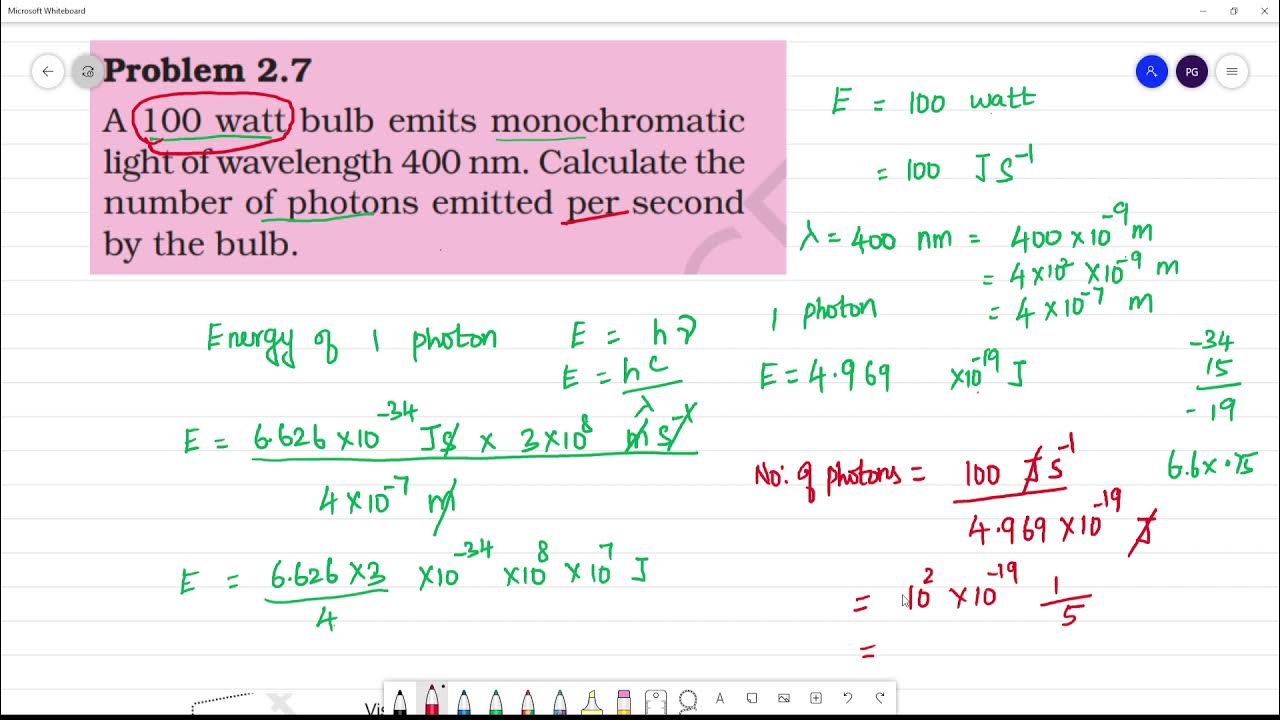 Microsoft Whiteboard
PG
Problem 2.7
A 100 watt bulb emits monochromatic
light of wavelength 400 nm. Calculate the
number of photons emitted per second
by the bulb.
E = 100 watt
= 100 J S⁻¹
λ = 400 nm = 400 × 10⁻⁹ m
= 4 × 10² × 10⁻⁹ m
= 4 × 10⁻⁷ m
Energy of 1 photon E = hν
E = hc/λ
E = 6.626 × 10⁻³⁴ JS × 3 × 10⁸ m s⁻¹
4 × 10⁻⁷ m
E = 6.626 × 3 × 10⁻³⁴ × 10⁸ × 10⁷ J
4
1 photon
E = 4.969 × 10⁻¹⁹ J
-34
15
-19
6.6 × .75
No: of photons = 100 J S⁻¹
4.969 × 10⁻¹⁹ J
= 10² × 10⁻¹⁹ 1/5
=
Vis
A